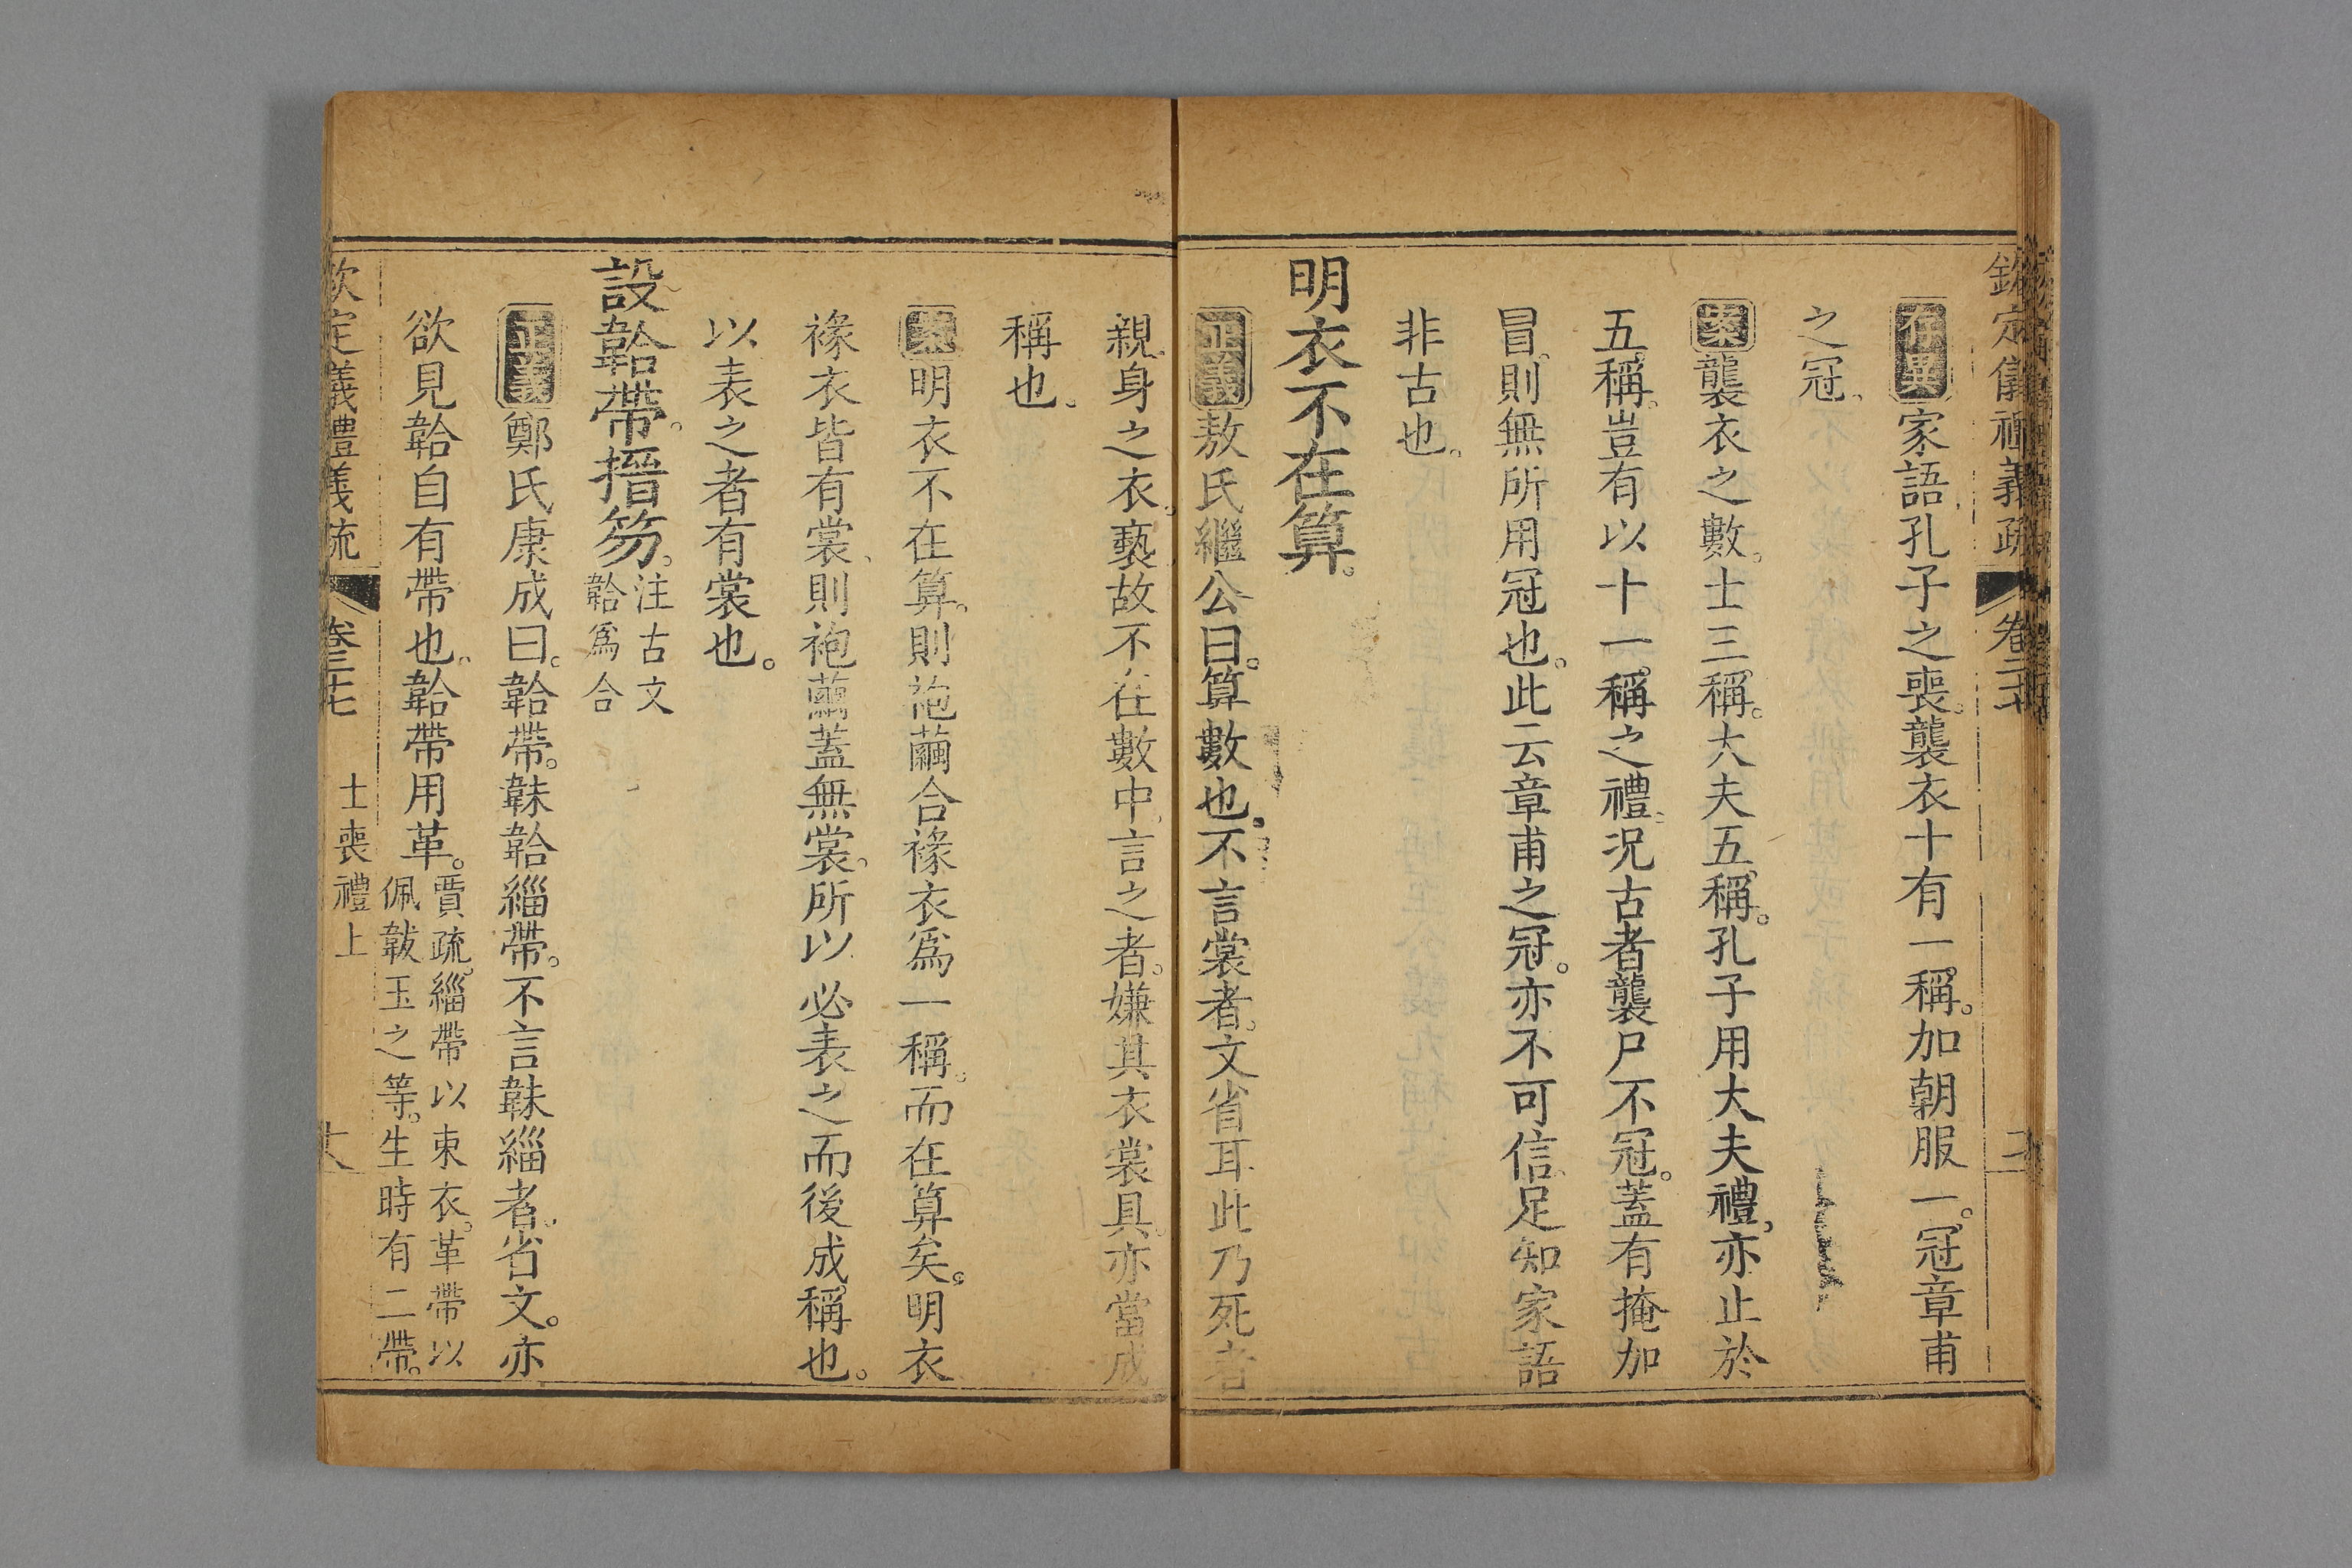 欽定儀禮義疏 卷二十七
存異家語孔子之喪。襲衣十有一稱。加朝服一。冠章甫
之冠。
案襲衣之數。士三稱。大夫五稱。孔子用大夫禮。亦止於
五稱。豈有以十一稱之禮。況古者襲尸不冠。蓋有掩加
冒。則無所用冠也。此云章甫之冠。亦不可信。足知家語
非古也。
明衣不在算。
正義敖氏繼公曰。算數也。不言裳者。文省耳此乃死者
親身之衣。褻故不在數中。言之者。嫌其衣裳具。亦當成
稱也。
案明衣不在算。則袍繭合褖衣爲一稱。而在算矣。明衣
褖衣皆有裳、則袍繭蓋無裳。所以必表之而後成稱也。
以表之者有裳也。
設韐帶。搢笏。注古文
韐爲合
正義鄭氏康成曰。韐帶。韎韐緇帶。不言韎緇者。省文。亦
欲見韐自有帶也。韐帶用革。賈疏。緇帶以束衣。革帶以
佩韍玉之等。生時有二帶。
欽定儀禮義疏 卷二十七 士喪禮上 十八